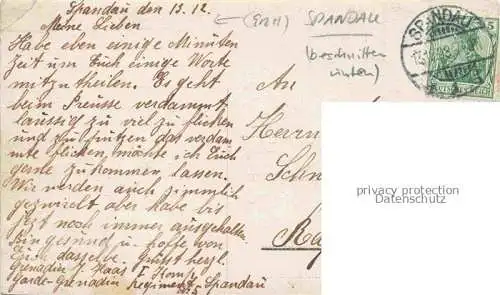 Spandau den 13.12.
Meine Lieben
Habe eben einige Minuten
Zeit um Euch einige Worte
mitzutheilen. Es geht
beim Preusse verdammt
laussig zu viel zu flicken
und zu putzen das verdam
mte flicken, möchte ich Euch
gerne zukommen lassen.
Wir werden auch ziemlich
gezwiebelt aber habe bis
jezt noch immer ausgehalten
bin gesund u. hoffe von
Euch dasselbe. Grüsst herzl.
Grenadier J. Haas I Komp
Garde-Grenadier Regiment 5 Spandau
SPANDAU
(beschnitten
unten)
SPANDAU
5
An
Herrn
Schn
Ra
privacy protection
Datenschutz